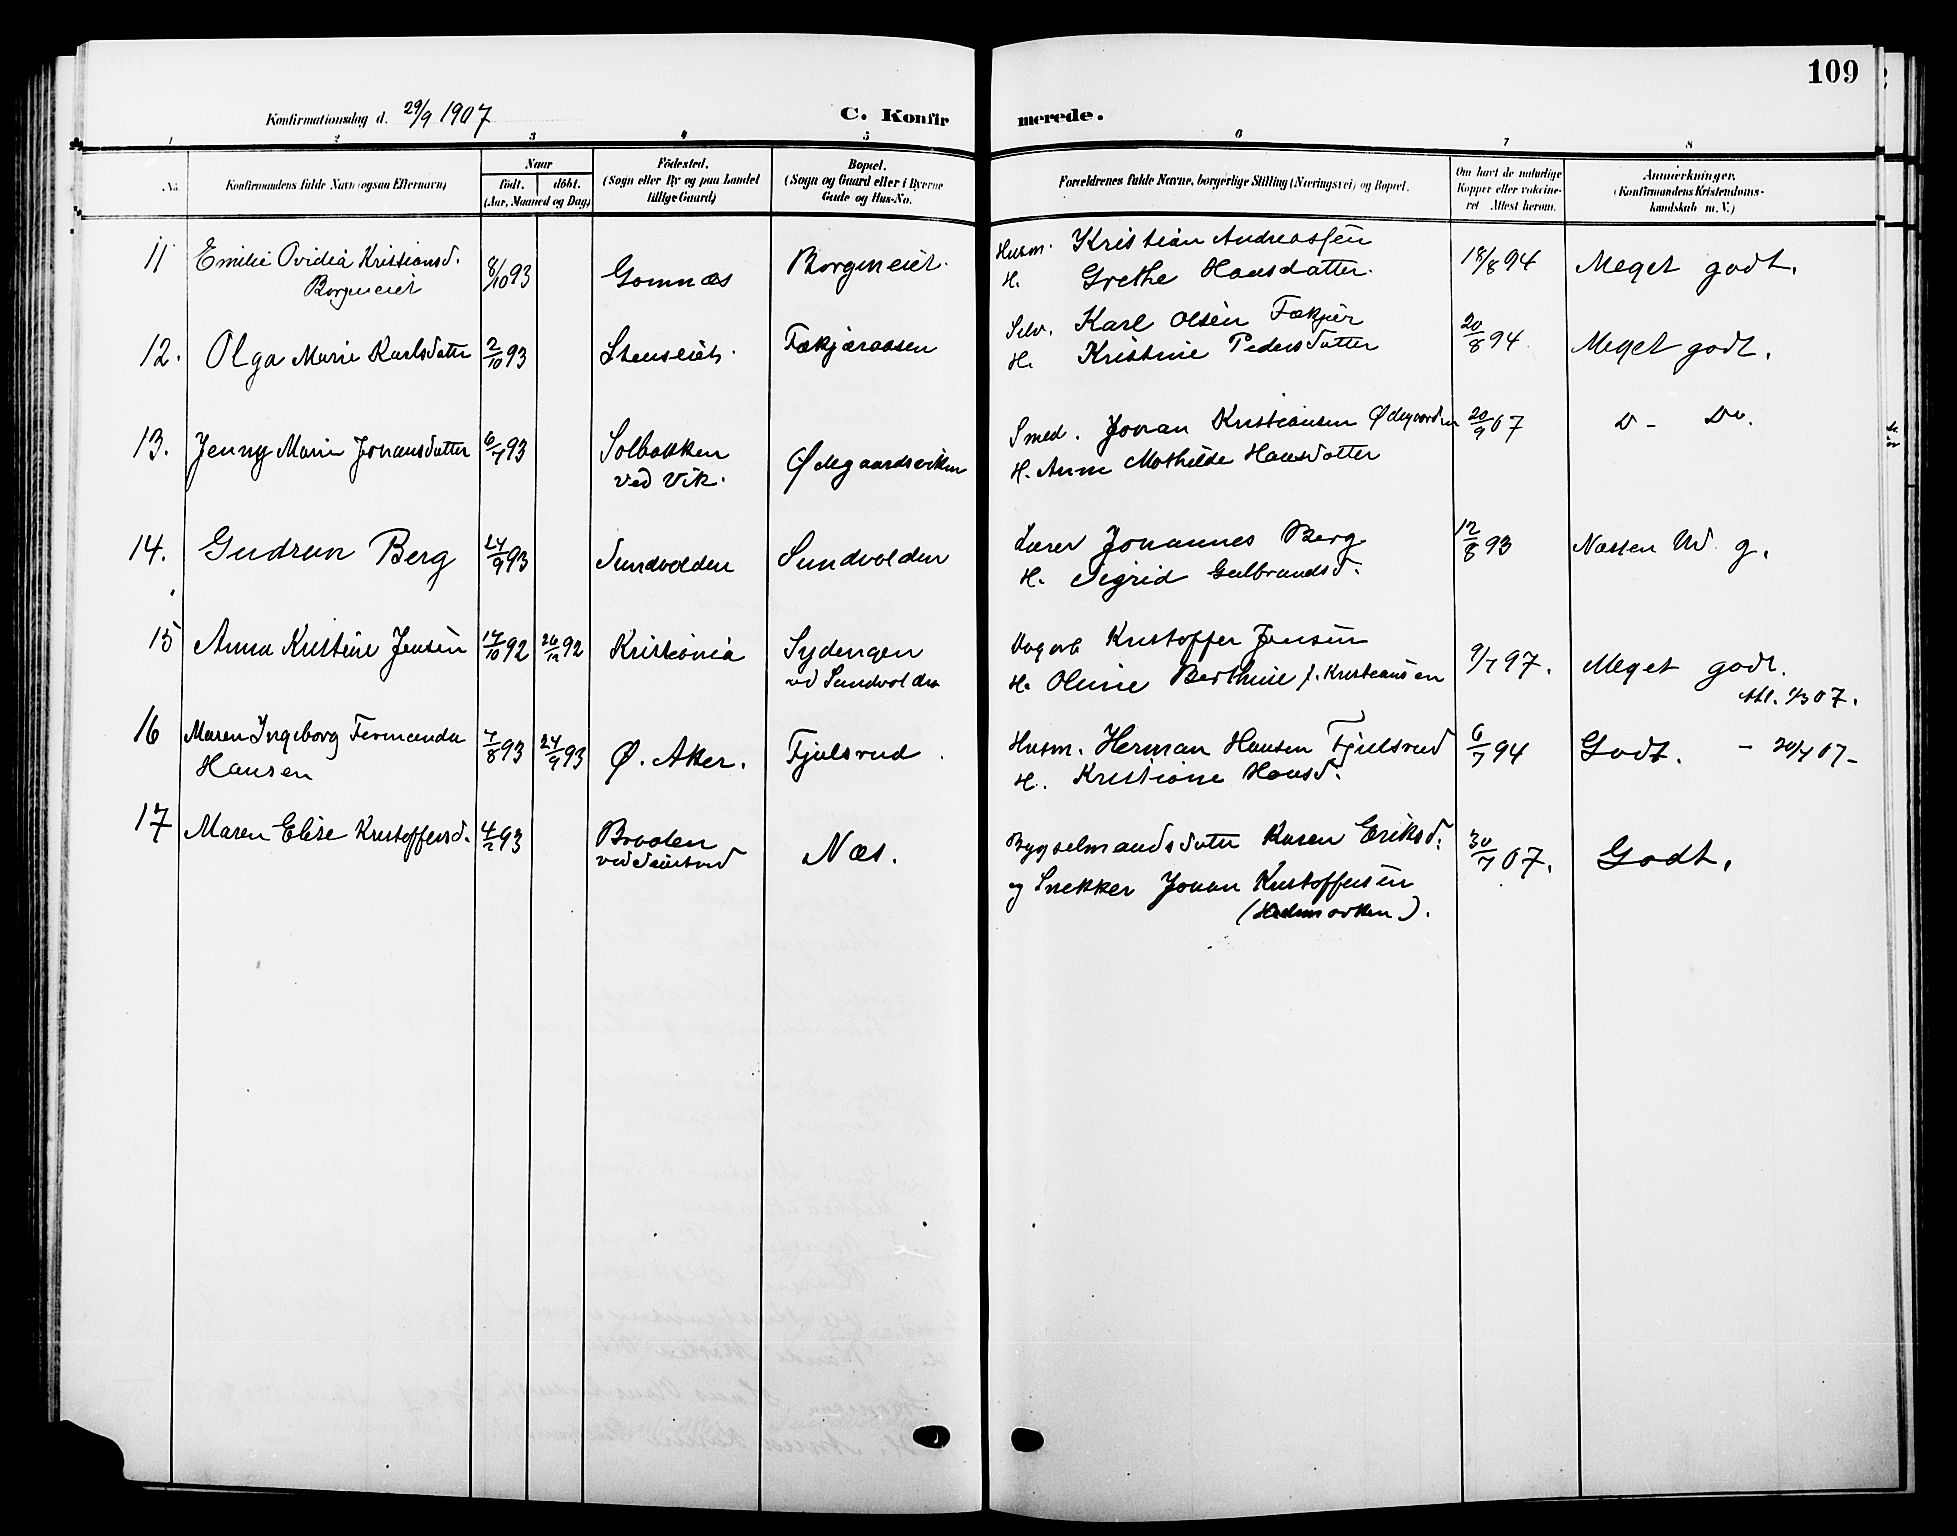 109
Konfirmationsdag d. 29/9 1907
C. Konfir merede.
1 2 3 4 5 6 7 8
No.
Konfirmandens fulde Navn (ogsaa Efternavn)
Naar
födt. döbt.
(Aar, Maaned og Dag)
Födested.
(Sogn eller By og paa Landet
tillige Gaard)
Bopæl.
(Sogn og Gaard eller i Byerne
Gade og Hus-No.
Forældrenes fulde Navne, borgerlige Stilling (Næringsvei) og Bopæl.
Om havt de naturlige
Kopper eller vakcine-
ret Attest herom.
Anmærkninger.
(Konfirmandens Kristendoms-
kundskab m. V.)
11 Emilie Ovidia Kristiansd. 8/10 93 Gomnæs Borgeneiet. Husm. Kristian Andreassen 18/8 94 Meget godt.
Borgeneiet H. Grethe Hansdatter.
12. Olga Marie Karlsdatter 2/10 93 Stenseiet. Fækjæraasen Selv. Karl Olsen Fækjær 20/8 94 Meget godt.
H. Kristine Pedersdatter
13. Jenny Marie Johansdatter 6/7 93 Solbakken Ødegaardsviken Smed. Johan Kristiansen Ødegaarden 20/9 07 D- Do.
ved Vik. H. Anne Mathilde Hansdatter
14. Gudrun Berg 24/9 93 Sundvolden Sundvolden Lærer Johannes Berg 12/8 93 Næsten Ud g.
H. Sigrid Gulbrandsd.
15 Anna Kristine Jensen 17/10 92 26/12 92 Kristiania Sydengen Dagarb Kristoffer Jensen 9/7 97. Meget godt.
vd Sundvolden H. Oline Berthine f. Kristiansen Atl. 1/3 07.
16 Maren Ingeborg Fernanda 7/8 93 24/9 93 Ø. Aker. Fjulsrud. Husm. Herman Hansen Fjulsrud 6/7 94 Godt. - 20/7 07-
Hansen H. Kristiane Hansd.
17 Maren Elise Kristoffersd. 4/2 93 Braaten Næs. Bygselmandsdatter Karen Eriksd. 30/7 07. Godt.
og Snekker Johan Kristoffersen
(Hedemarken).